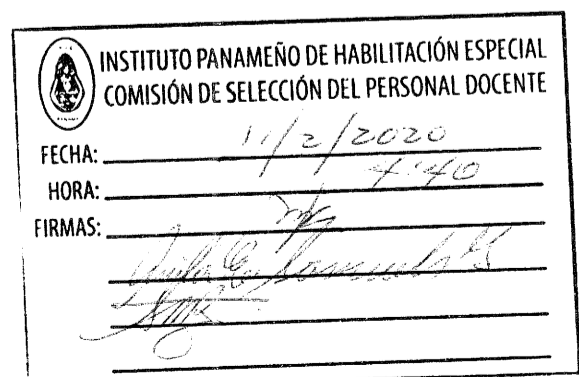 INSTITUTO PANAMEÑO DE HABILITACIÓN ESPECIAL
COMISIÓN DE SELECCIÓN DEL PERSONAL DOCENTE
FECHA: 11/2/2020
HORA: 4:40
FIRMAS: